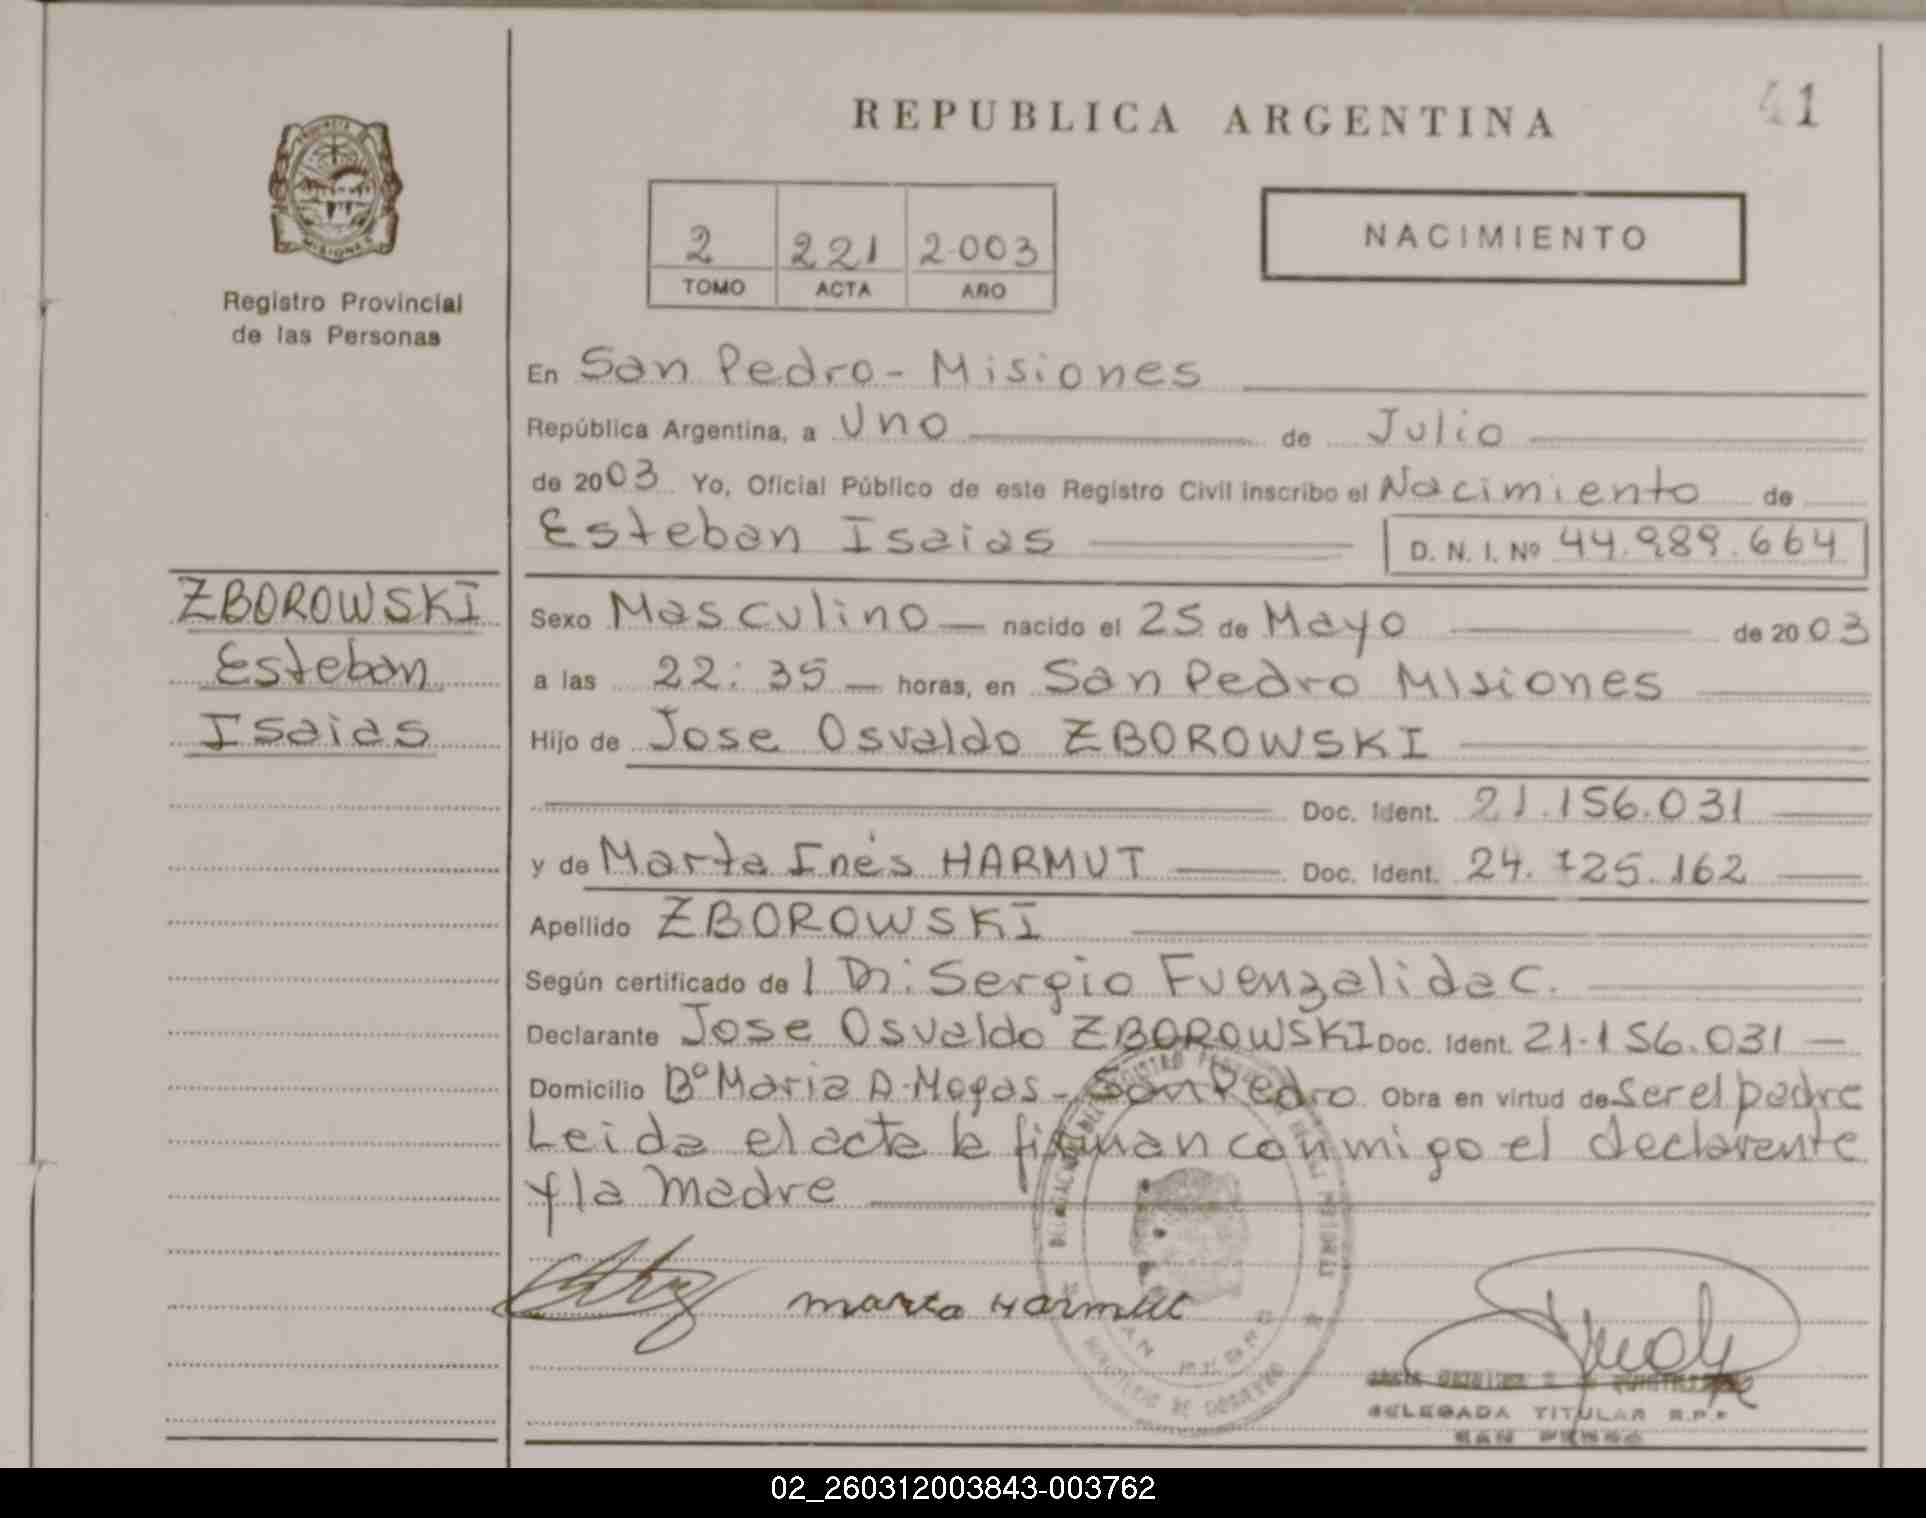 REPUBLICA ARGENTINA
41
PROVINCIA
MISIONES
Registro Provincial
de las Personas
2 221 2.003
TOMO ACTA AÑO
NACIMIENTO
En San Pedro - Misiones
República Argentina, a Uno de Julio
de 2003 Yo, Oficial Público de este Registro Civil inscribo el Nacimiento de
Esteban Isaias D. N. I. Nº 44.989.664
ZBOROWSKI
Esteban
Isaias
Sexo Masculino nacido el 25 de Mayo de 2003
a las 22:35 horas, en San Pedro Misiones
Hijo de Jose Osvaldo ZBOROWSKI
Doc. Ident. 21.156.031
y de Marta Inés HARMUT Doc. Ident. 24.725.162
Apellido ZBOROWSKI
Según certificado de l Dr: Sergio Fuenzalida C.
Declarante Jose Osvaldo ZBOROWSKI Doc. Ident. 21.156.031
Domicilio Bº Maria A. Mogas - San Pedro Obra en virtud de ser el padre
Leida el acta la firman conmigo el declarante
y la madre
marta Harmut
DELEGADA TITULAR R.P.P.
SAN PEDRO
02_260312003843-003762